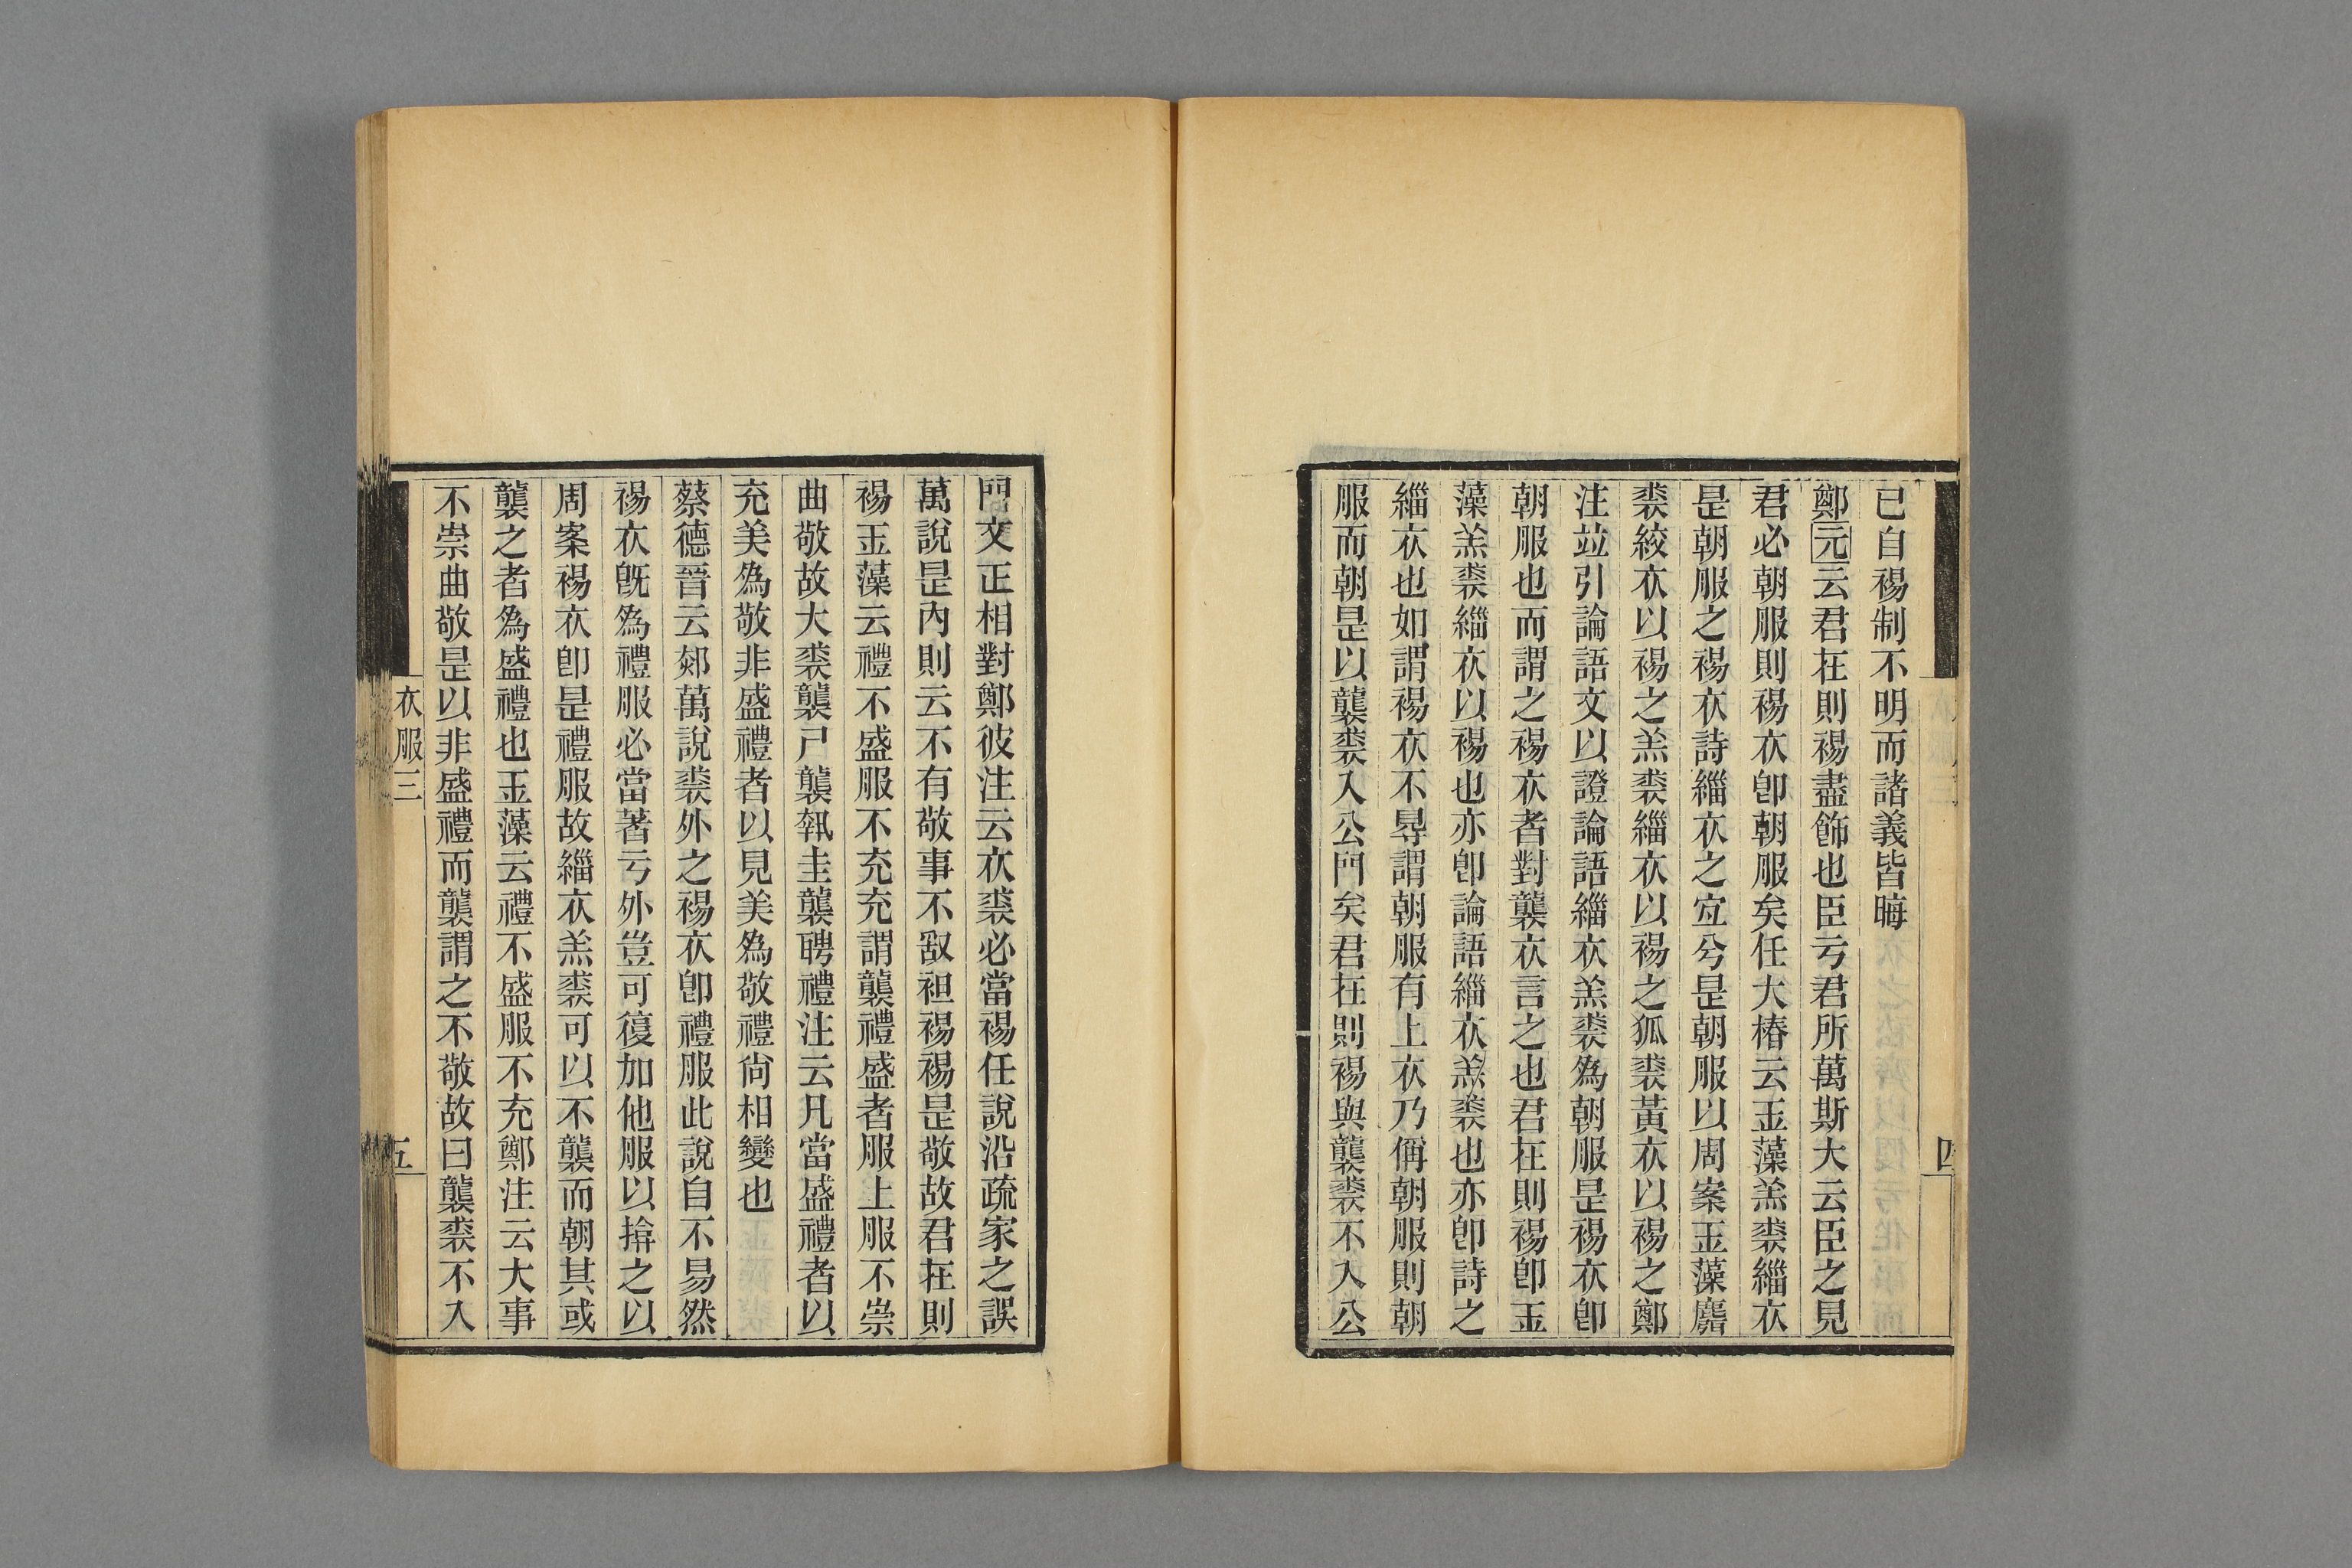 已自裼制不明而諸義皆晦
鄭元云君在則裼盡飾也臣亏君所萬斯大云臣之見
君必朝服則裼衣卽朝服矣任大椿云玉藻羔裘緇衣
是朝服之裼衣詩緇衣之宜兮是朝服以周案玉藻麛
裘絞衣以裼之羔裘緇衣以裼之狐裘黃衣以裼之鄭
注竝引論語文以證論語緇衣羔裘爲朝服是裼衣卽
朝服也而謂之裼衣者對襲衣言之也君在則裼卽玉
藻羔裘緇衣以裼也亦卽論語緇衣羔裘也亦卽詩之
緇衣也如謂裼衣不㝵謂朝服有上衣乃偁朝服則朝
服而朝是以襲裘入公門矣君在則裼與襲裘不入公
四
門文正相對鄭彼注云衣裘必當裼任說沿疏家之誤
萬說是內則云不有敬事不敢袒裼裼是敬故君在則
裼玉藻云禮不盛服不充充謂襲禮盛者服上服不崇
曲敬故大裘襲尸襲執圭襲聘禮注云凡當盛禮者以
充美爲敬非盛禮者以見美爲敬禮尙相變也
蔡德晉云郊萬說裘外之裼衣卽禮服此說自不易然
裼衣旣爲禮服必當著亏外豈可復加他服以揜之以
周案裼衣卽是禮服故緇衣羔裘可以不襲而朝其或
襲之者爲盛禮也玉藻云禮不盛服不充鄭注云大事
不崇曲敬是以非盛禮而襲謂之不敬故曰襲裘不入
衣服三
五